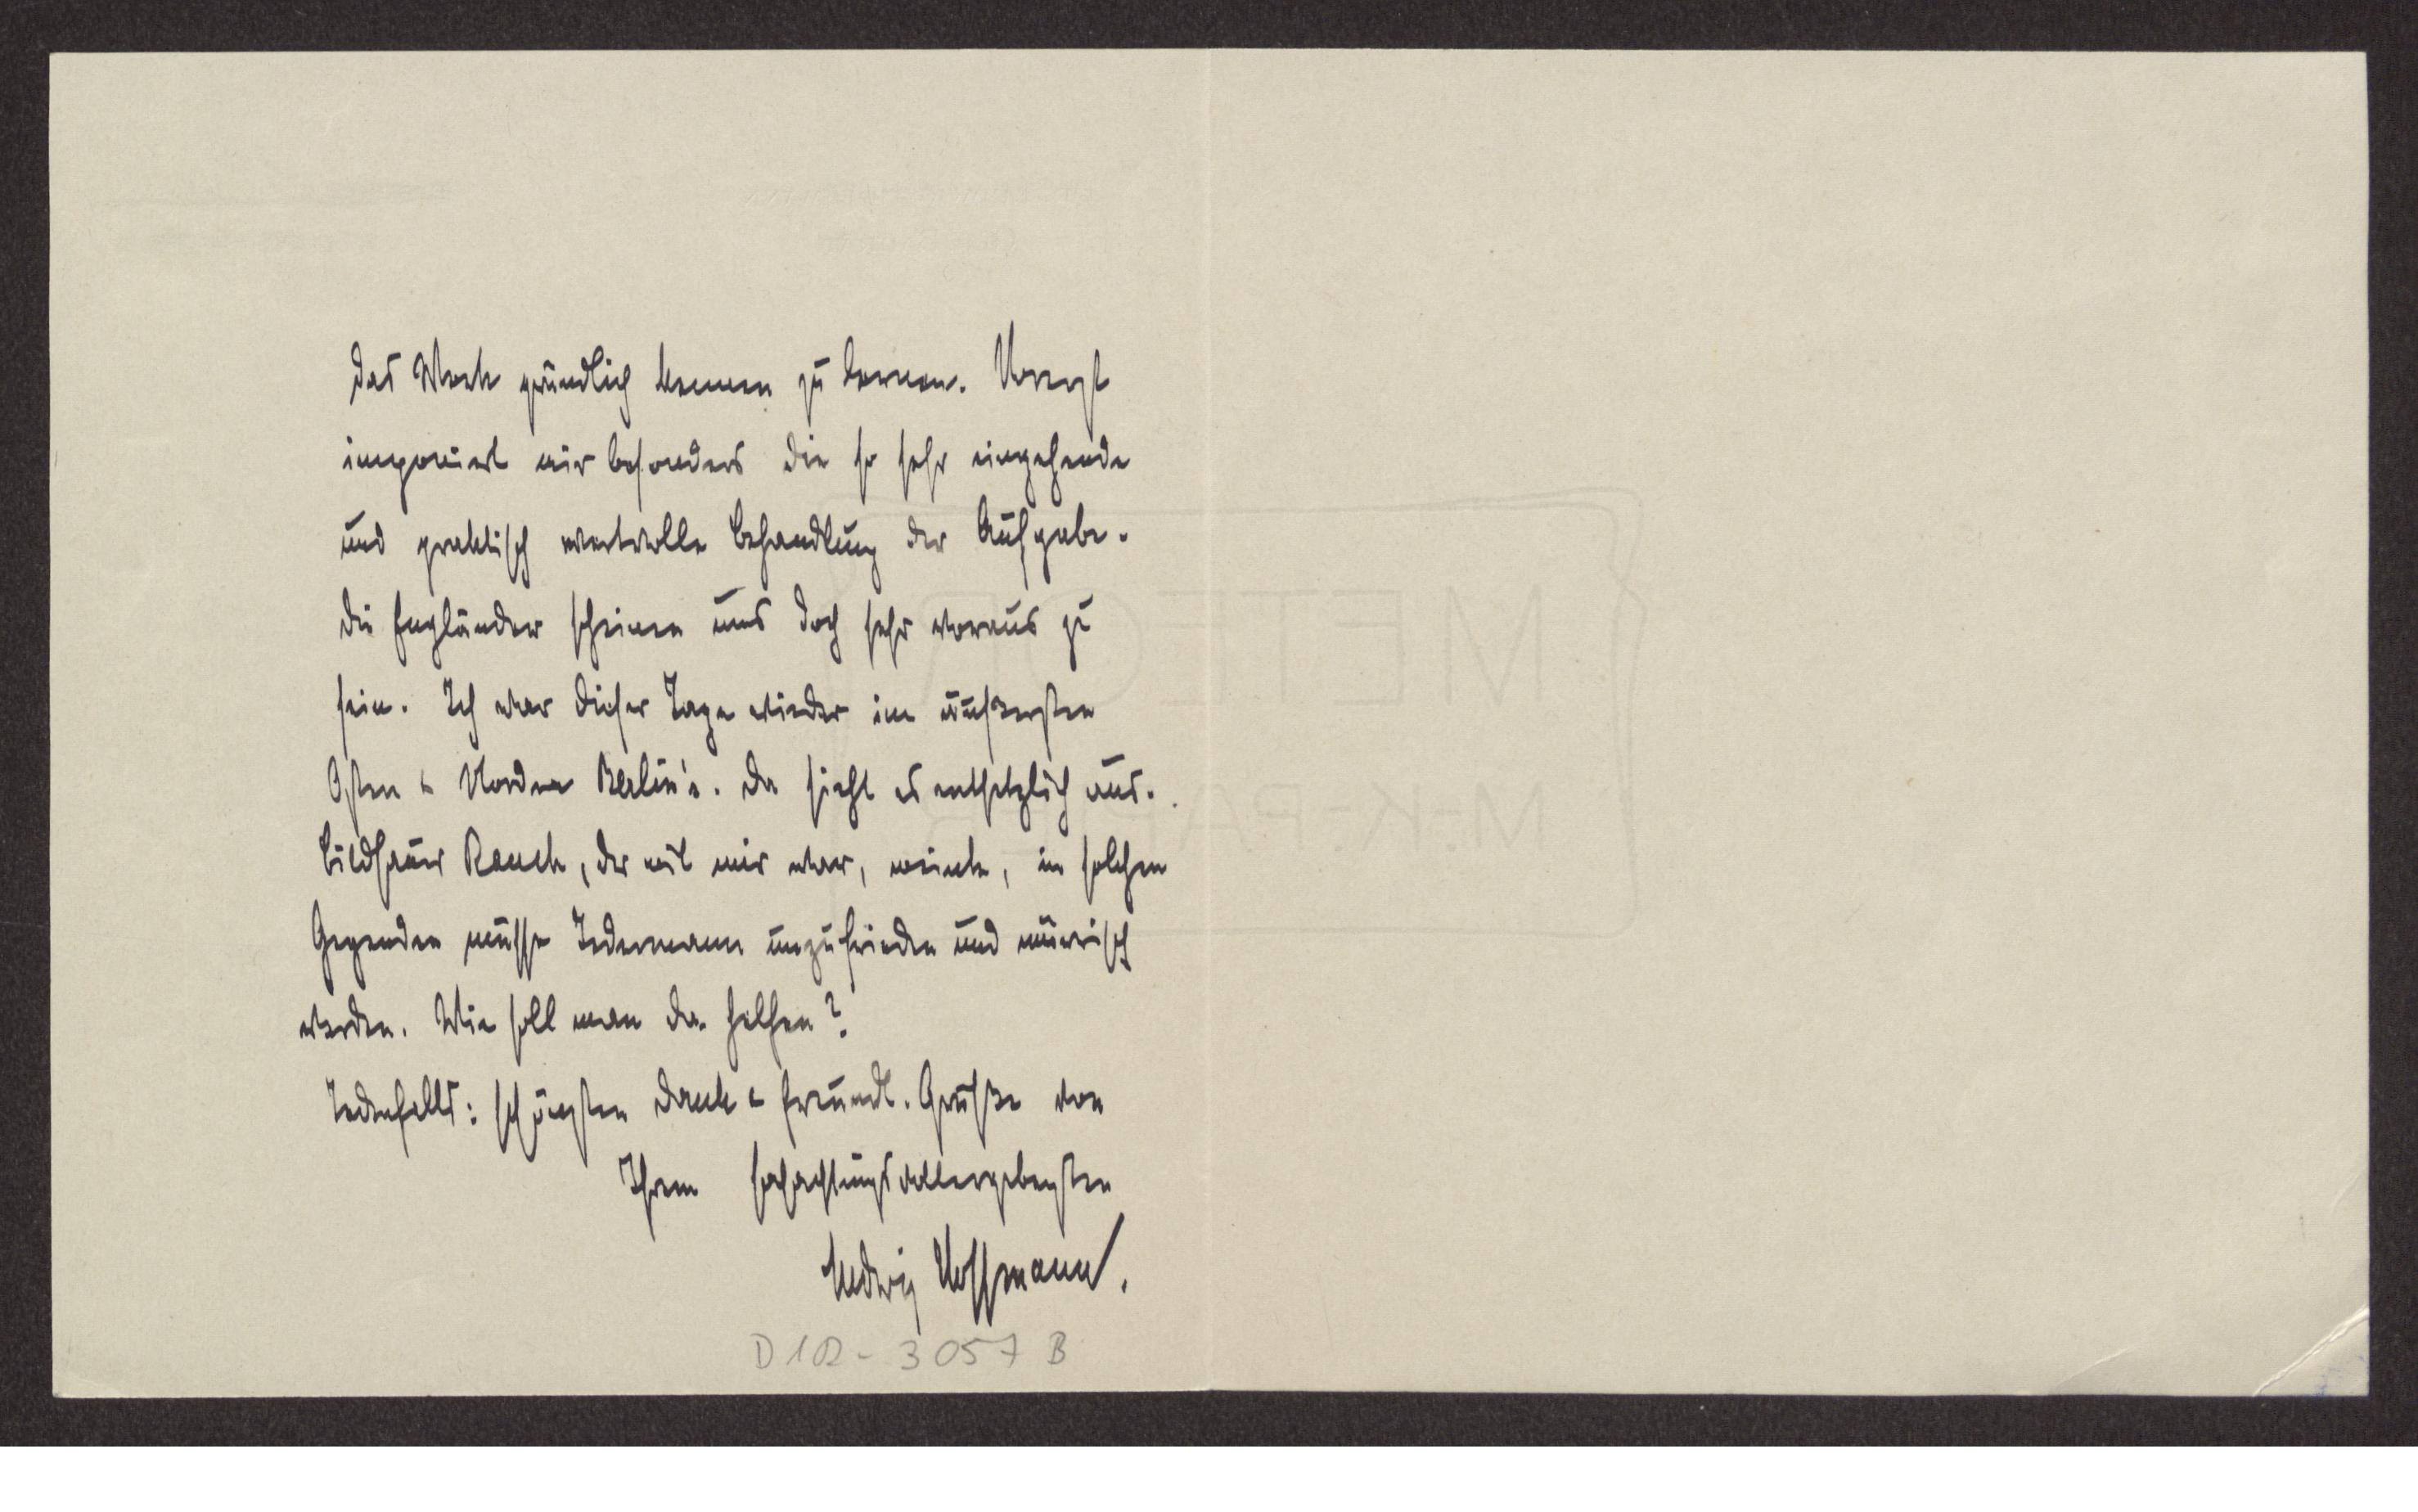 das Werk gründlich kennen zu lernen. Vorerst
imponiert mir besonders die so sehr eingehende
und praktisch wertvolle Behandlung der Aufgabe.
Die Engländer scheinen uns doch sehr voraus zu
sein. Ich war dieser Tage wieder im äußersten
Osten u Norden Berlin's. Da sieht es entsetzlich aus.
Bildhauer Rauch, der mit mir war, meinte, in solchen
Gegenden müsse Jedermann unzufrieden und mürrisch
werden. Wie soll man da helfen?
Jedenfalls: schönsten Dank u freundl. Grüße von
Ihrem hochachtungsvollergebensten
Ludwig Hoffmann.
D 102-3057 B